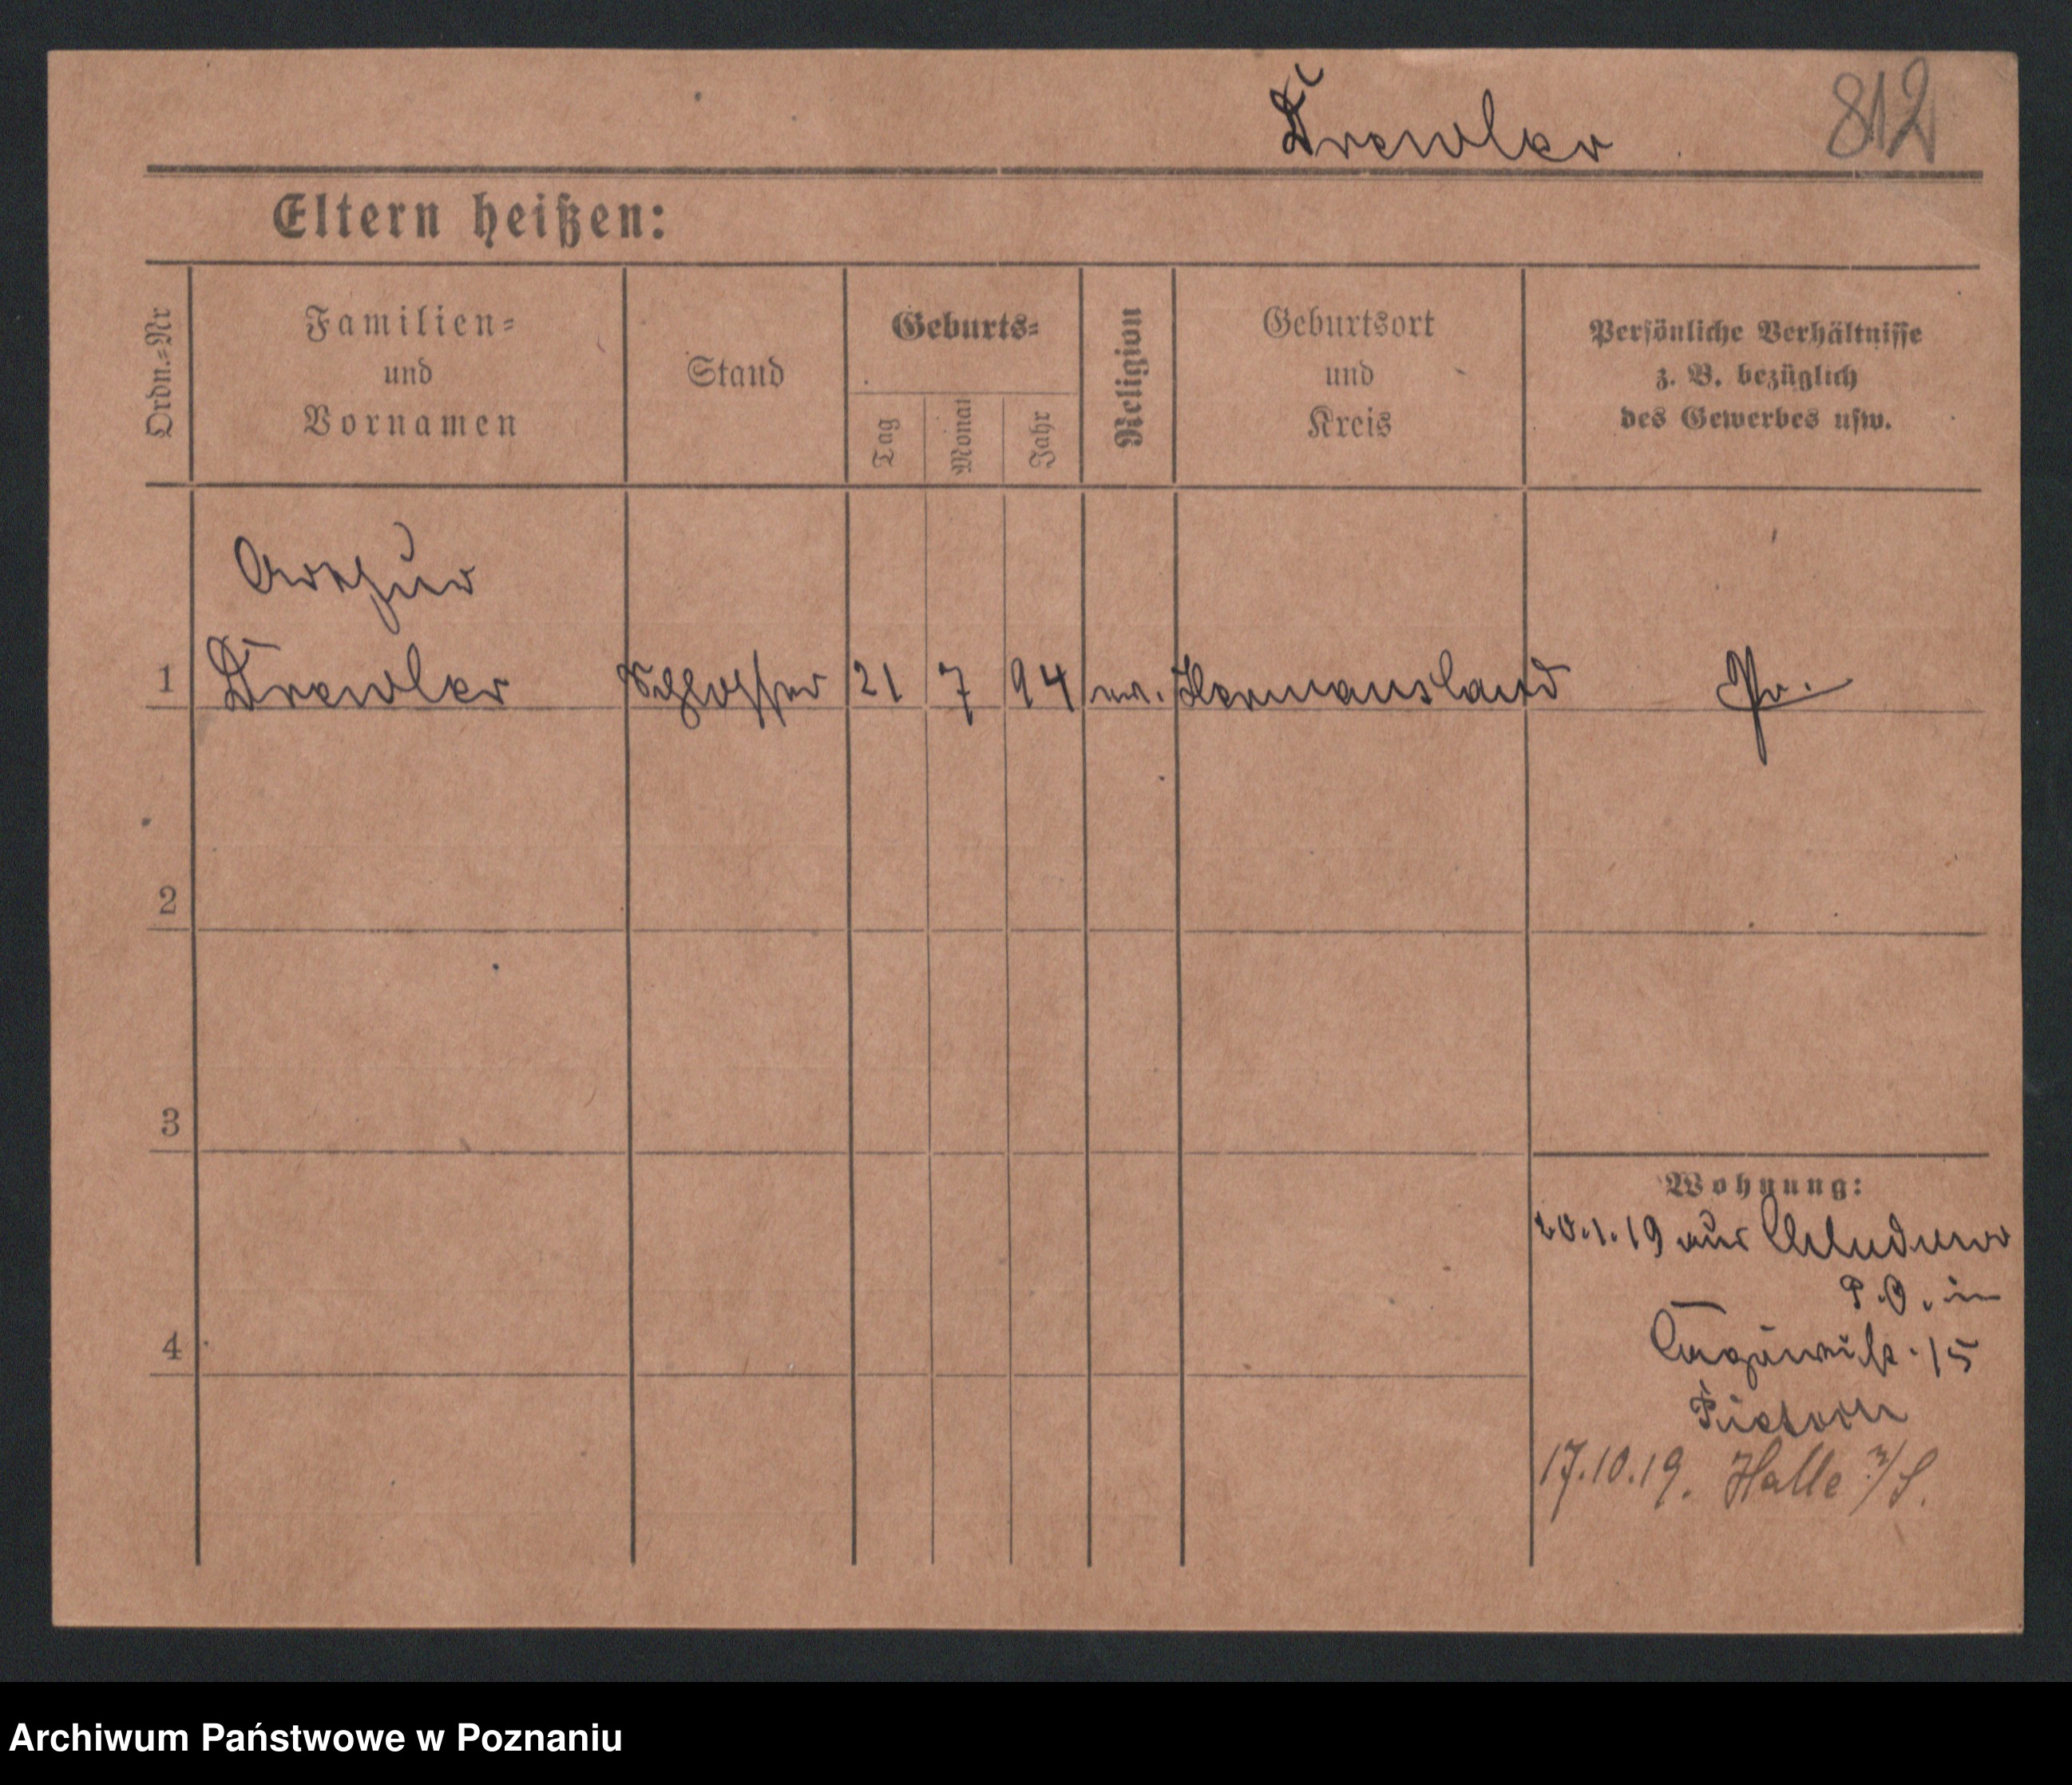 Drewler 812
Eltern heißen:
Ordn.=Nr
Familien=
und
Vornamen
Stand
Geburts=
Tag
Monat
Jahr
Religion
Geburtsort
und
Kreis
Persönliche Verhältnisse
z. B. bezüglich
des Gewerbes usw.
Arthur
1 Drewler Schlosser 21 7 94 ev. Hermansland Pr.
2
3
4
Wohnung:
20.1.19 aus
P.O. in
15
17.10.19. Halle a/S.
Archiwum Państwowe w Poznaniu